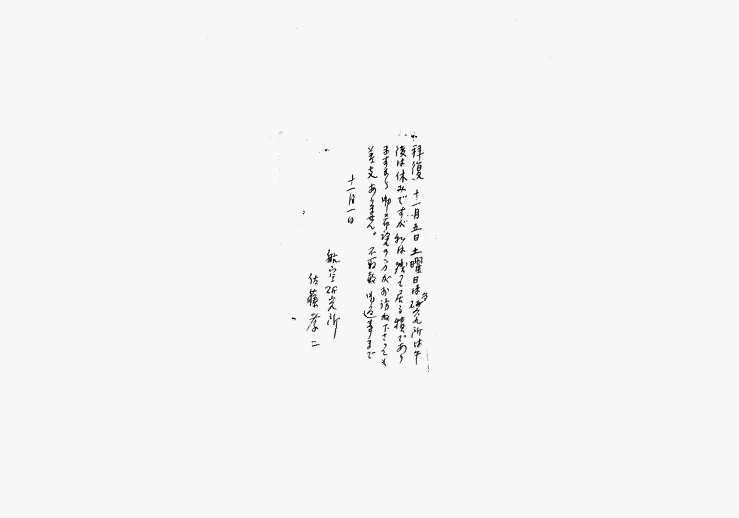 拝復 十一月五日土曜日は当研究所は午
後は休みですが私は残って居る積であり
ますから御希望の方がお訪ね下さっても
差支ありません。不取敢御返事まで
十一月一日
航空研究所
佐藤孝二